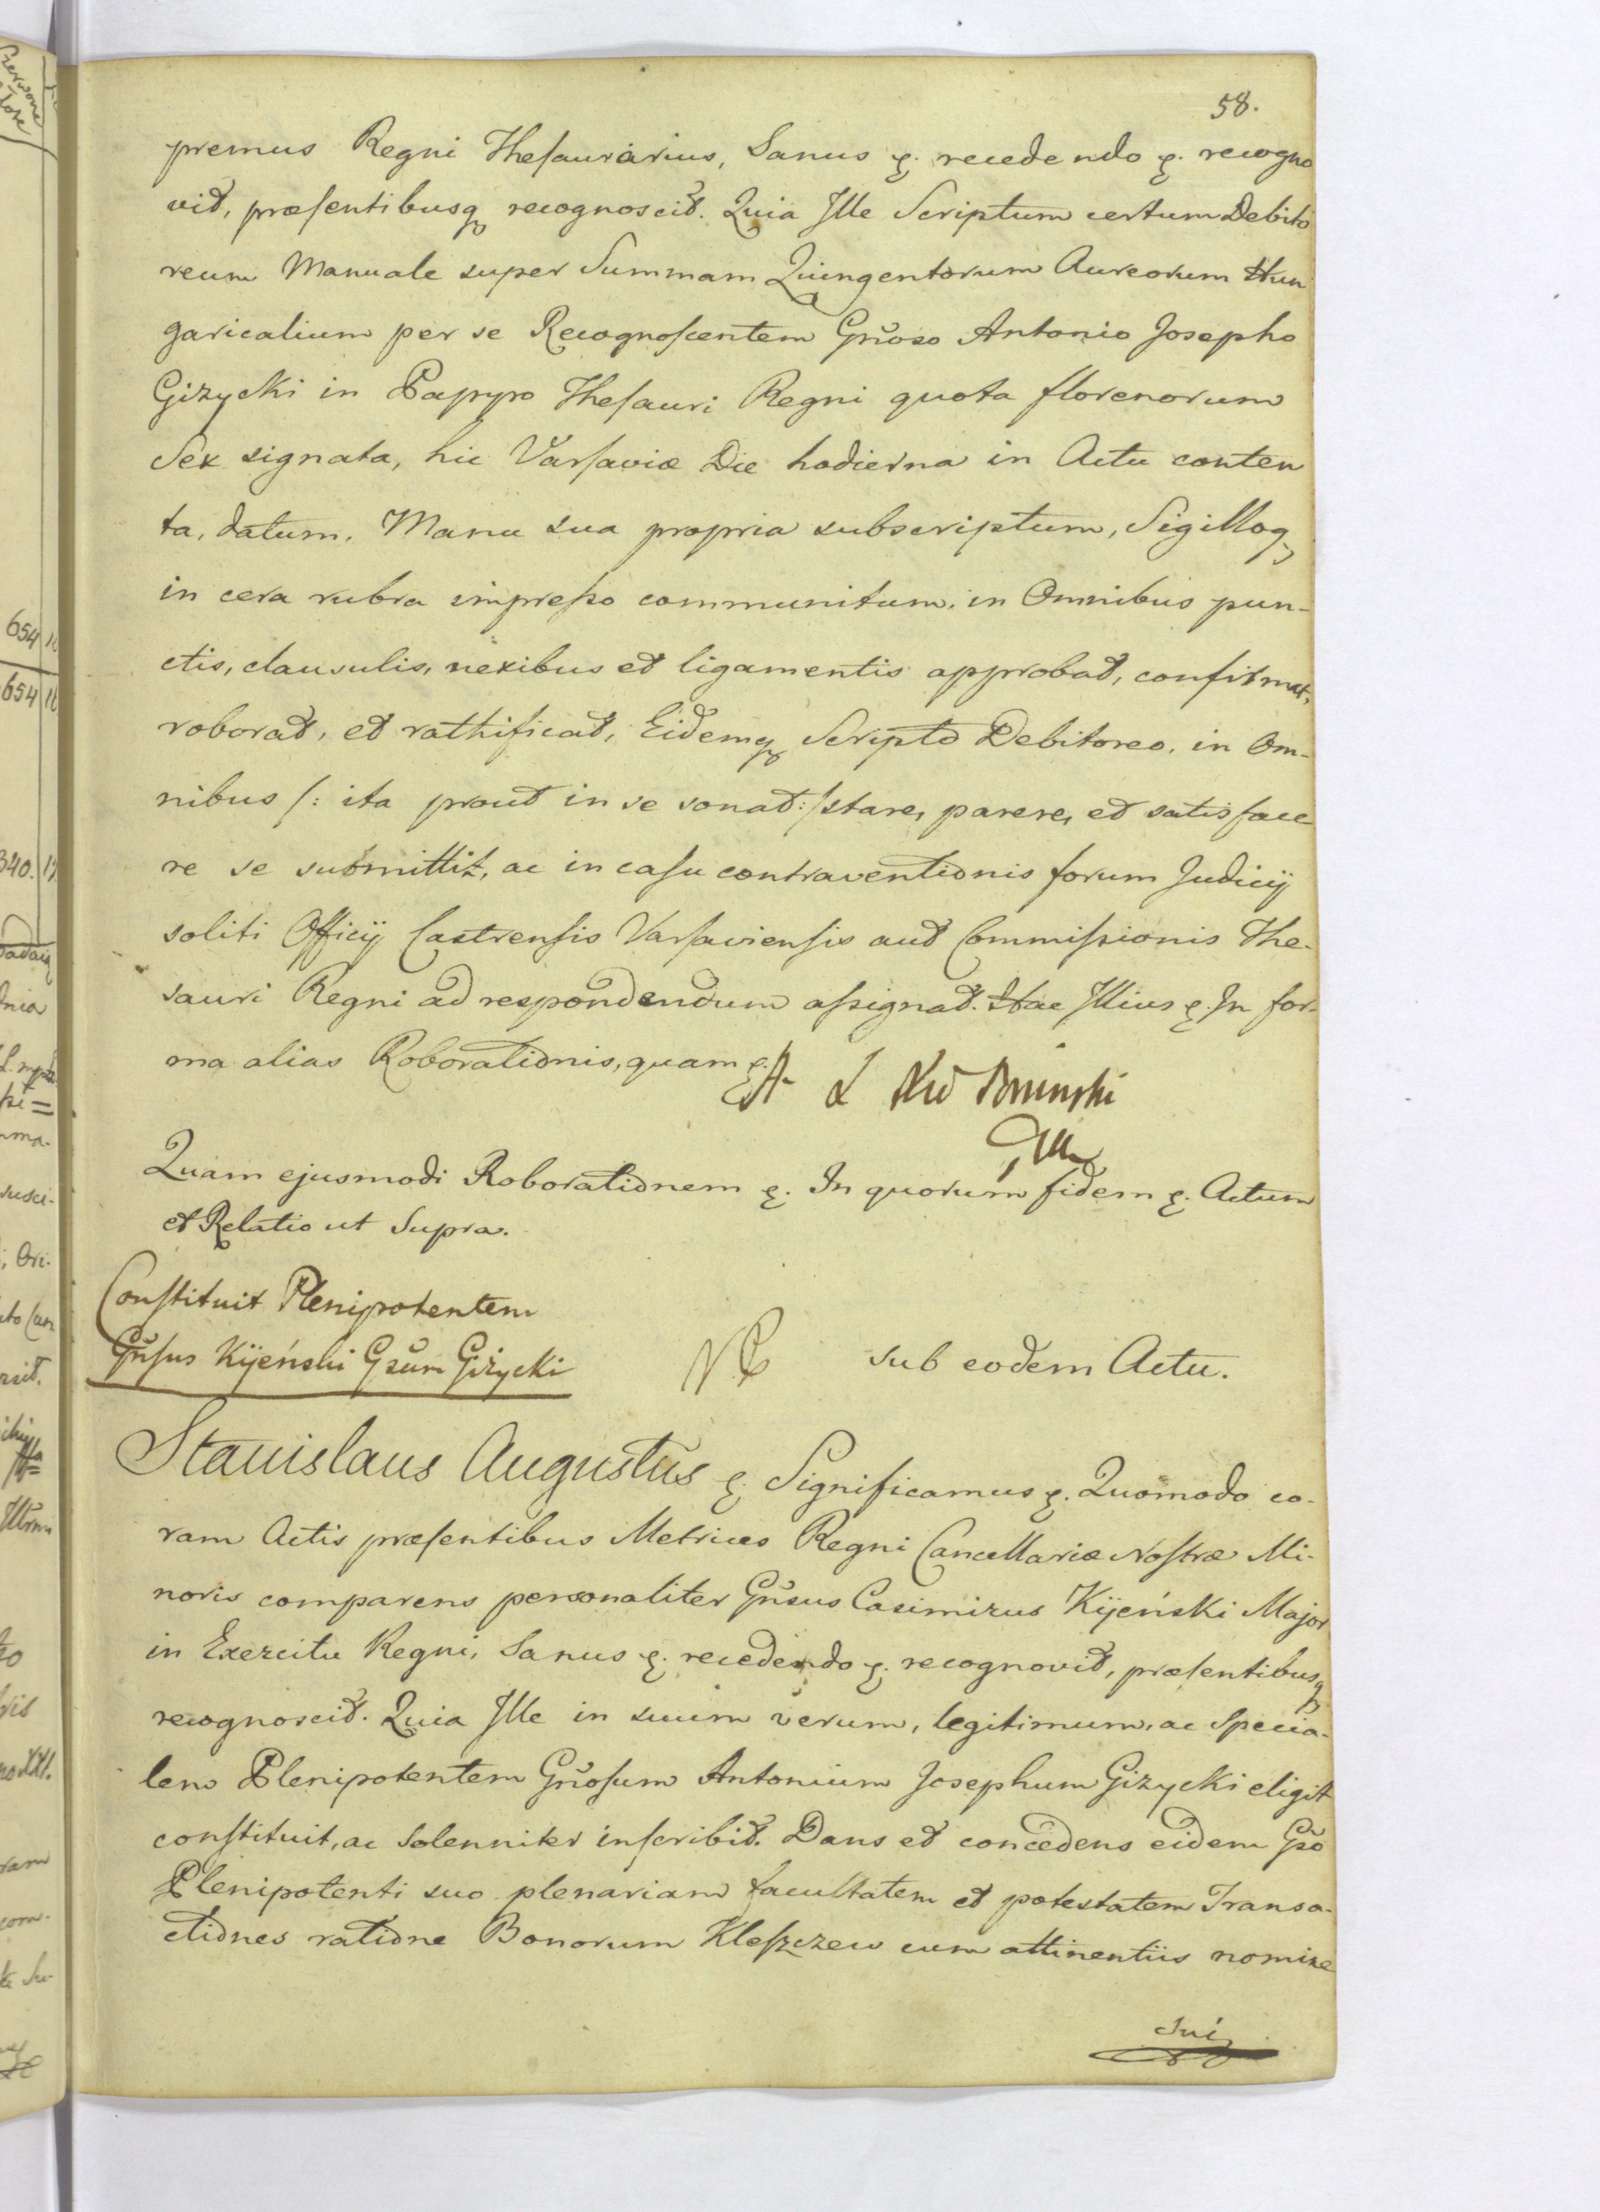 58.
premus Regni Thesaurarius, Sanus &. recedendo &. recogno
vit, præsentibusq recognoscit. Quia Ille Scriptum certum Debito
reum Manuale super Summam Quingentorum Aureorum Hun
garicalium per se Recognoscentem Gnoso Antonio Josepho
Gizycki in Papyro Thesauri Regni quota florenorum
Sex signata, hic Varsaviæ Die hodierna in Actu conten
ta, datum. Manu sua propria subscriptum, Sigilloq
in cera rubra impresso communitum, in Omnibus pun-
ctis, clausulis, nexibus et ligamentis approbat, confirmat,
roborat, et rathificat, Eidemq Scripto Debitoreo, in Om-
nibus /: ita prout in se sonat:/ stare, parere, et satisface
re se submittit, ac in casu contraventionis forum Judicij
soliti Officij Castrensis Varsaviensis aut Commissionis The-
sauri Regni ad respondendum assignat. Hac Illius &. In for-
ma alias Roborationis, quam &.
A Ł Xże Poninski
Quam ejusmodi Roborationem &. In quorum fidem &. Actum
et Relatio ut Supra.
Constituit Plenipotentem
Gnsus Kijeński Gsum Giżycki
sub eodem Actu.
Stanislaus Augustus &. Significamus &. Quomodo co-
ram Actis præsentibus Metrices Regni Cancellariæ Nostræ Mi-
noris comparens personaliter Gnsus Casimirus Kijeński Major
in Exercitu Regni, Sanus &. recedendo &. recognovit, præsentibusq
recognoscit. Quia Ille in suum verum, legitimum, ac specia-
lem Plenipotentem Gnosum Antonium Josephum Gizycki eligit
constituit, ac Solenniter inscribit. Dans et concedens eidem Gso
Plenipotenti suo plenariam facultatem et potestatem Transa-
ctiones ratione Bonorum Kleszczew cum attinentiis nomine
sui